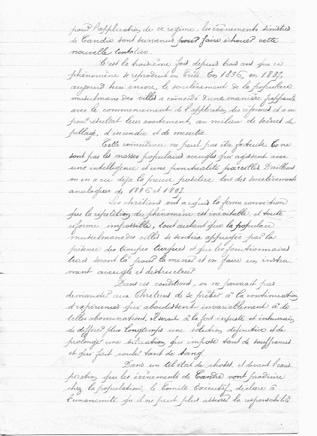 pour l'application de ce régime. Les évènements sinistres
de Candie sont survenus pour faire échouer cette
nouvelle tentative.
C'est la troisième fois depuis trois ans que ce
phénomène se reproduit en Crète. En 1896, en 1897,
aujourd'hui encore, le soulèvement de la populace
musulmane des villes a coïncidé d'une manière frappante
avec le commencement de l'application des réformes et a eu
pour résultat leur avortement, au milieu de scènes de
pillage, d'incendie et de meurtre.
Cette coïncidence ne peut pas être fortuite. Ce ne
sont pas les masses populaires aveugles qui agissent avec
une intelligence et une ponctualité pareilles. D'ailleurs
on en a eu déjà la preuve lors des soulèvements
analogues de 1896 et 1897.
Les chrétiens ont acquis la ferme conviction
que la répétition du phénomène est inévitable et toute
réforme impossible, tout autant que la populace
musulmane des villes se sentira appuyée par la
présence des troupes turques et que les fonctionnaires
turcs seront là pour la mener et en faire un instru-
ment aveugle et destructeur.
Dans ces conditions, on ne pourrait pas
demander aux Chrétiens de se prêter à la continuation
d'expériences que aboutissent invariablement à de
telles abominations. Il serait à la fois injuste et inhumain,
de différer plus longtemps une solution définitive et de
prolonger une situation qui impose tant de souffrances
et qui fait couler tant de sang.
Dans un tel état de choses, et devant l'exas-
pération que les évènements de Candie vont produire
chez la population, le Comité Exécutif déclare à
l'unanimité qu'il ne peut plus assumer la responsabilité